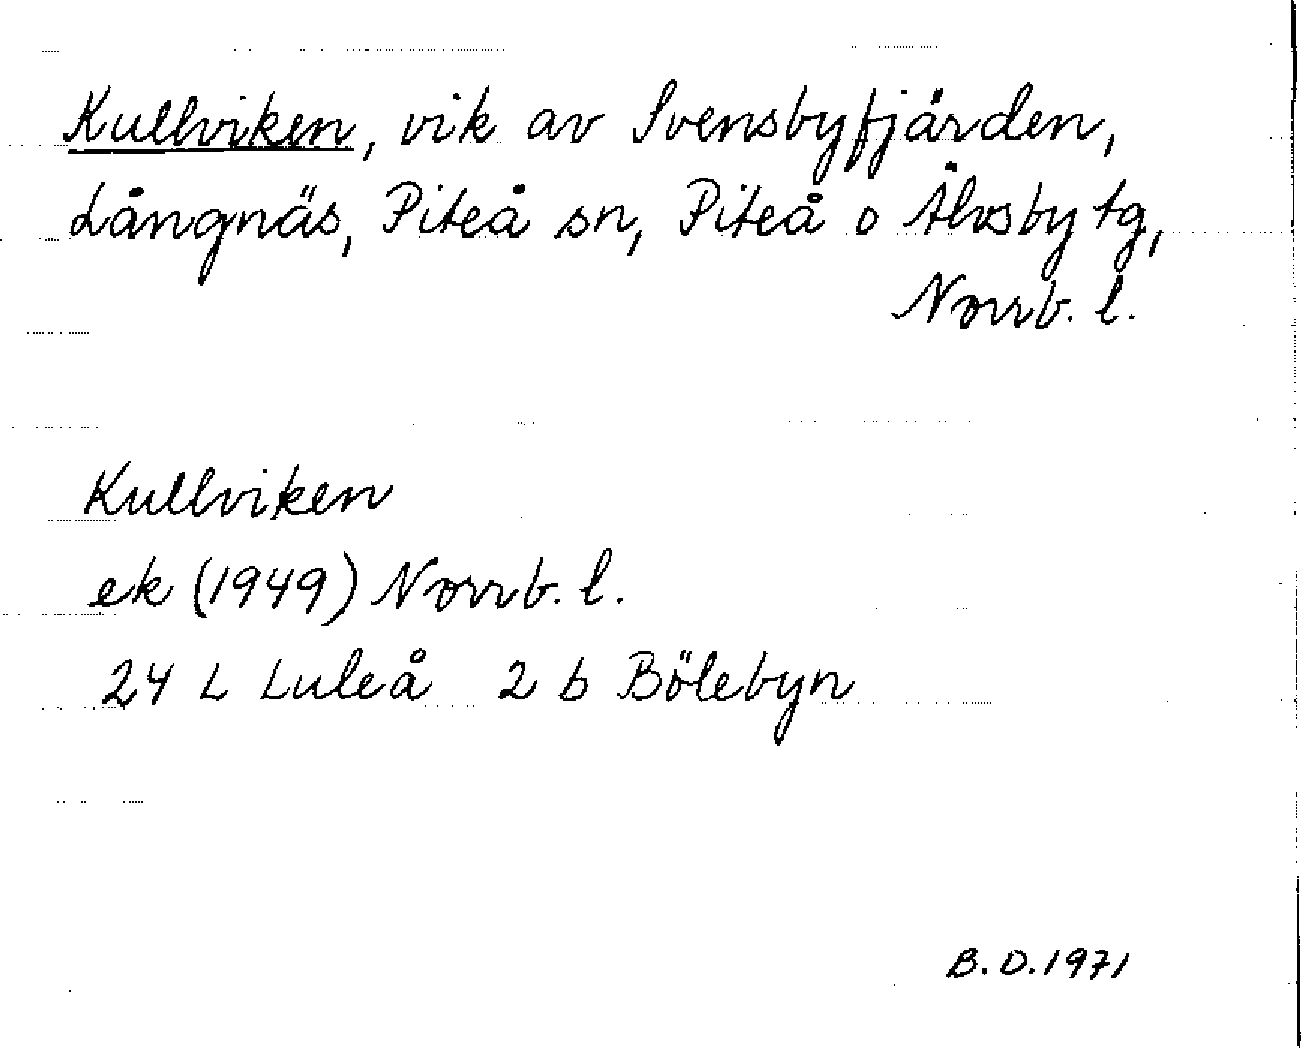 Kullviken, vik av Svensbyfjärden,
Långnäs, Piteå sn, Piteå o Älvsby tg,
Norrb. l.
Kullviken
ek (1949) Norrb. l.
24 L Luleå 2 b Bölebyn
B.D. 1971